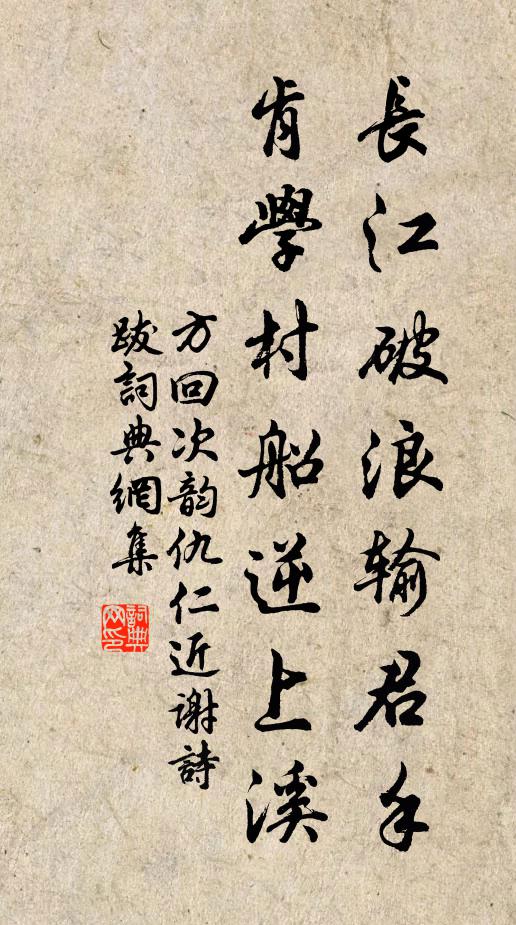 長江破浪輸君手
肯學村船逆上溪
方回次韵仇仁近謝詩
跋詞典網集
詞典網印